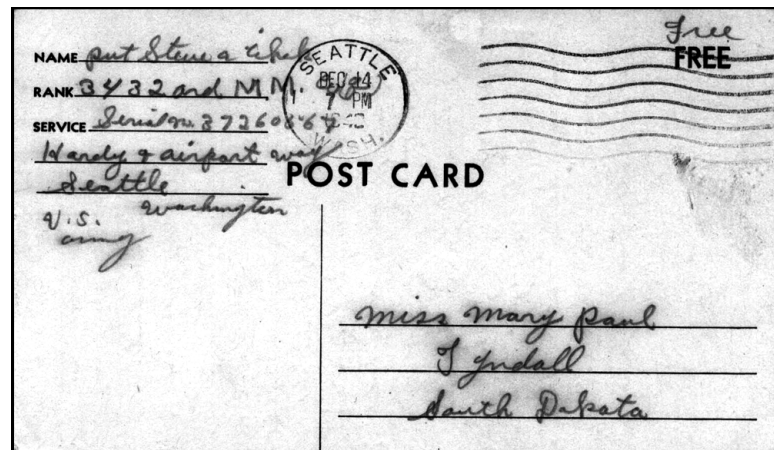 NAME put Steve a
RANK 3432 ord M M.
SERVICE Serial no. 37260
Hardy & airport way
Seattle
Washington
U.S.
army
SEATTLE
DEC 14
7 PM
1942
WASH.
Free
FREE
POST CARD
miss mary paul
Tyndall
South Dakota